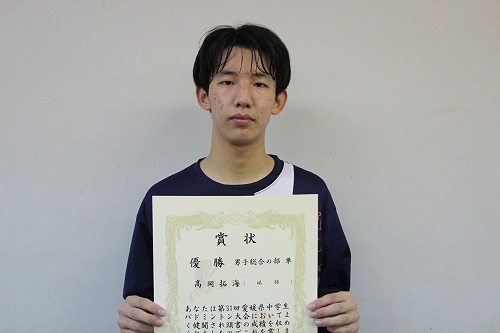 賞状
優勝 男子総合の部 単
高岡拓海
あなたは第31回愛媛県中学生
バドミントン大会においてよ
く健闘され頭書の成績を収め